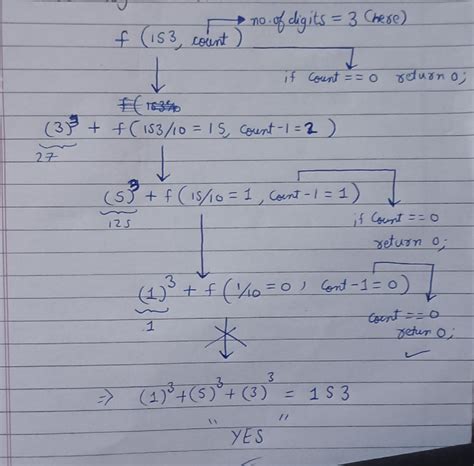 no. of digits = 3 (here)
f (153, count)
if count == 0 return 0;
f(153%
(3)³ + f(153/10 = 15, count-1 = 2)
27
(5)³ + f(15/10 = 1, count-1 = 1)
125
if count == 0
return 0;
(1)³ + f(1/10 = 0, cont-1 = 0)
1
count == 0
retun 0;
⇒ (1)³+(5)³+(3)³ = 153
"YES"